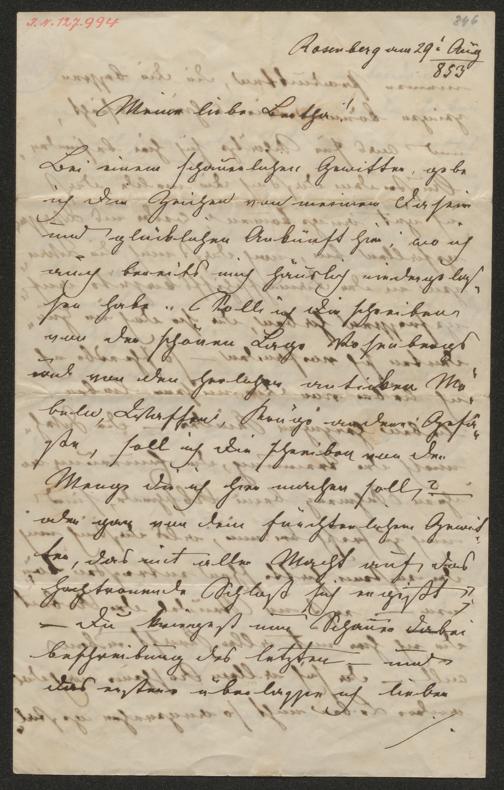 I.N. 127.994
846
Rosenberg am 29t Aug
853
Meine liebe Bertha!
Bei einem schauerlichen Gewitter gebe
ich Dir Zeichen von meinem Dasein
und glücklichen Ankunft hier; wo ich
auch bereits mich häuslich niedergelas"
sen habe. Soll ich Dir schreiben
von der schönen Lage Rosenbergs
und von den herlichen antiken Mö"
beln Waffen, Krüge andere Gefä"
ße, soll ich Dir schreiben von der
Menge die ich hier machen soll,?
oder gar von dem fürchterlichen Gewit"
ter, das mit aller Macht auf das
hochtronende Schloß sich ergießt,
— Du kriegest nur Schauer dabei
beschreibung des letzten — und
das erstere überlasse ich lieber